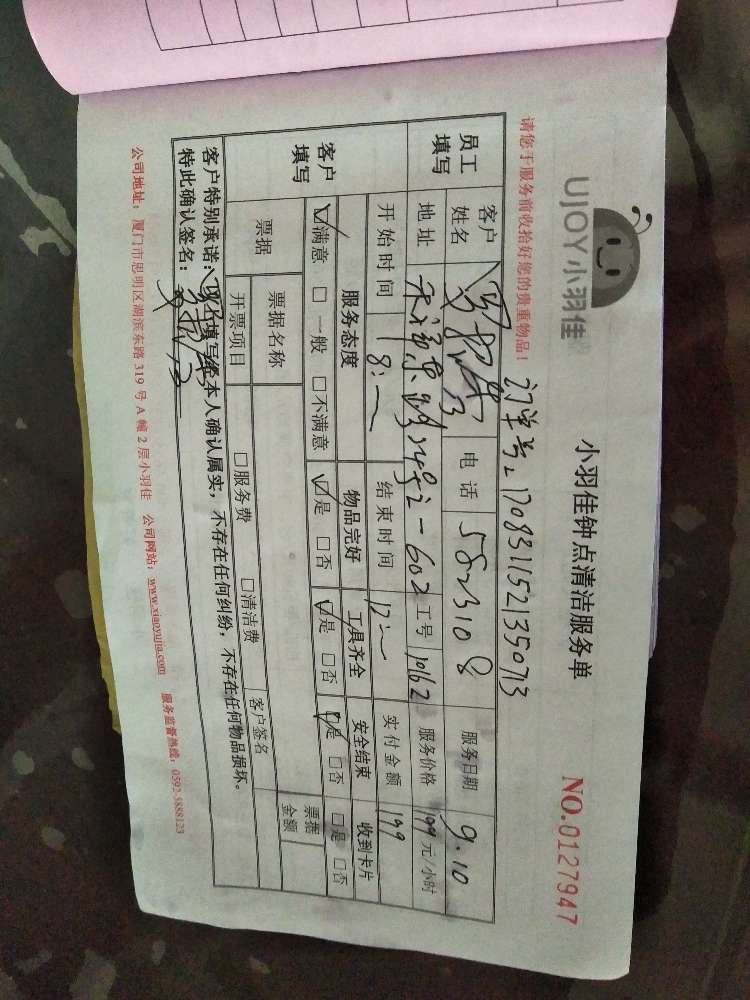 UJOY小羽佳
小羽佳钟点清洁服务单
NO.0127947
请您于服务前收拾好您的贵重物品！
订单号：1708311521350713
员工填写
客户姓名 电话 5823108 服务日期 9.10
地址 2-602 工号 10162 服务价格 199 元/小时
开始时间 18:— 结束时间 12:— 实付金额 199
客户填写
服务态度 物品完好 工具齐全 安全结束 收到卡片
☑满意 □一般 □不满意 ☑是 □否 ☑是 □否 ☑是 □否 □是 □否
票据 票据名称 票据金额
开票项目 □服务费 □清洁费 客户签名
客户特别承诺：以上填写经本人确认属实，不存在任何纠纷，不存在任何物品损坏。
特此确认签名：
公司地址：厦门市思明区湖滨东路 319 号 A 幢 2 层小羽佳 公司网站：www.xiaoyujia.com 服务监督热线：0592-5888123